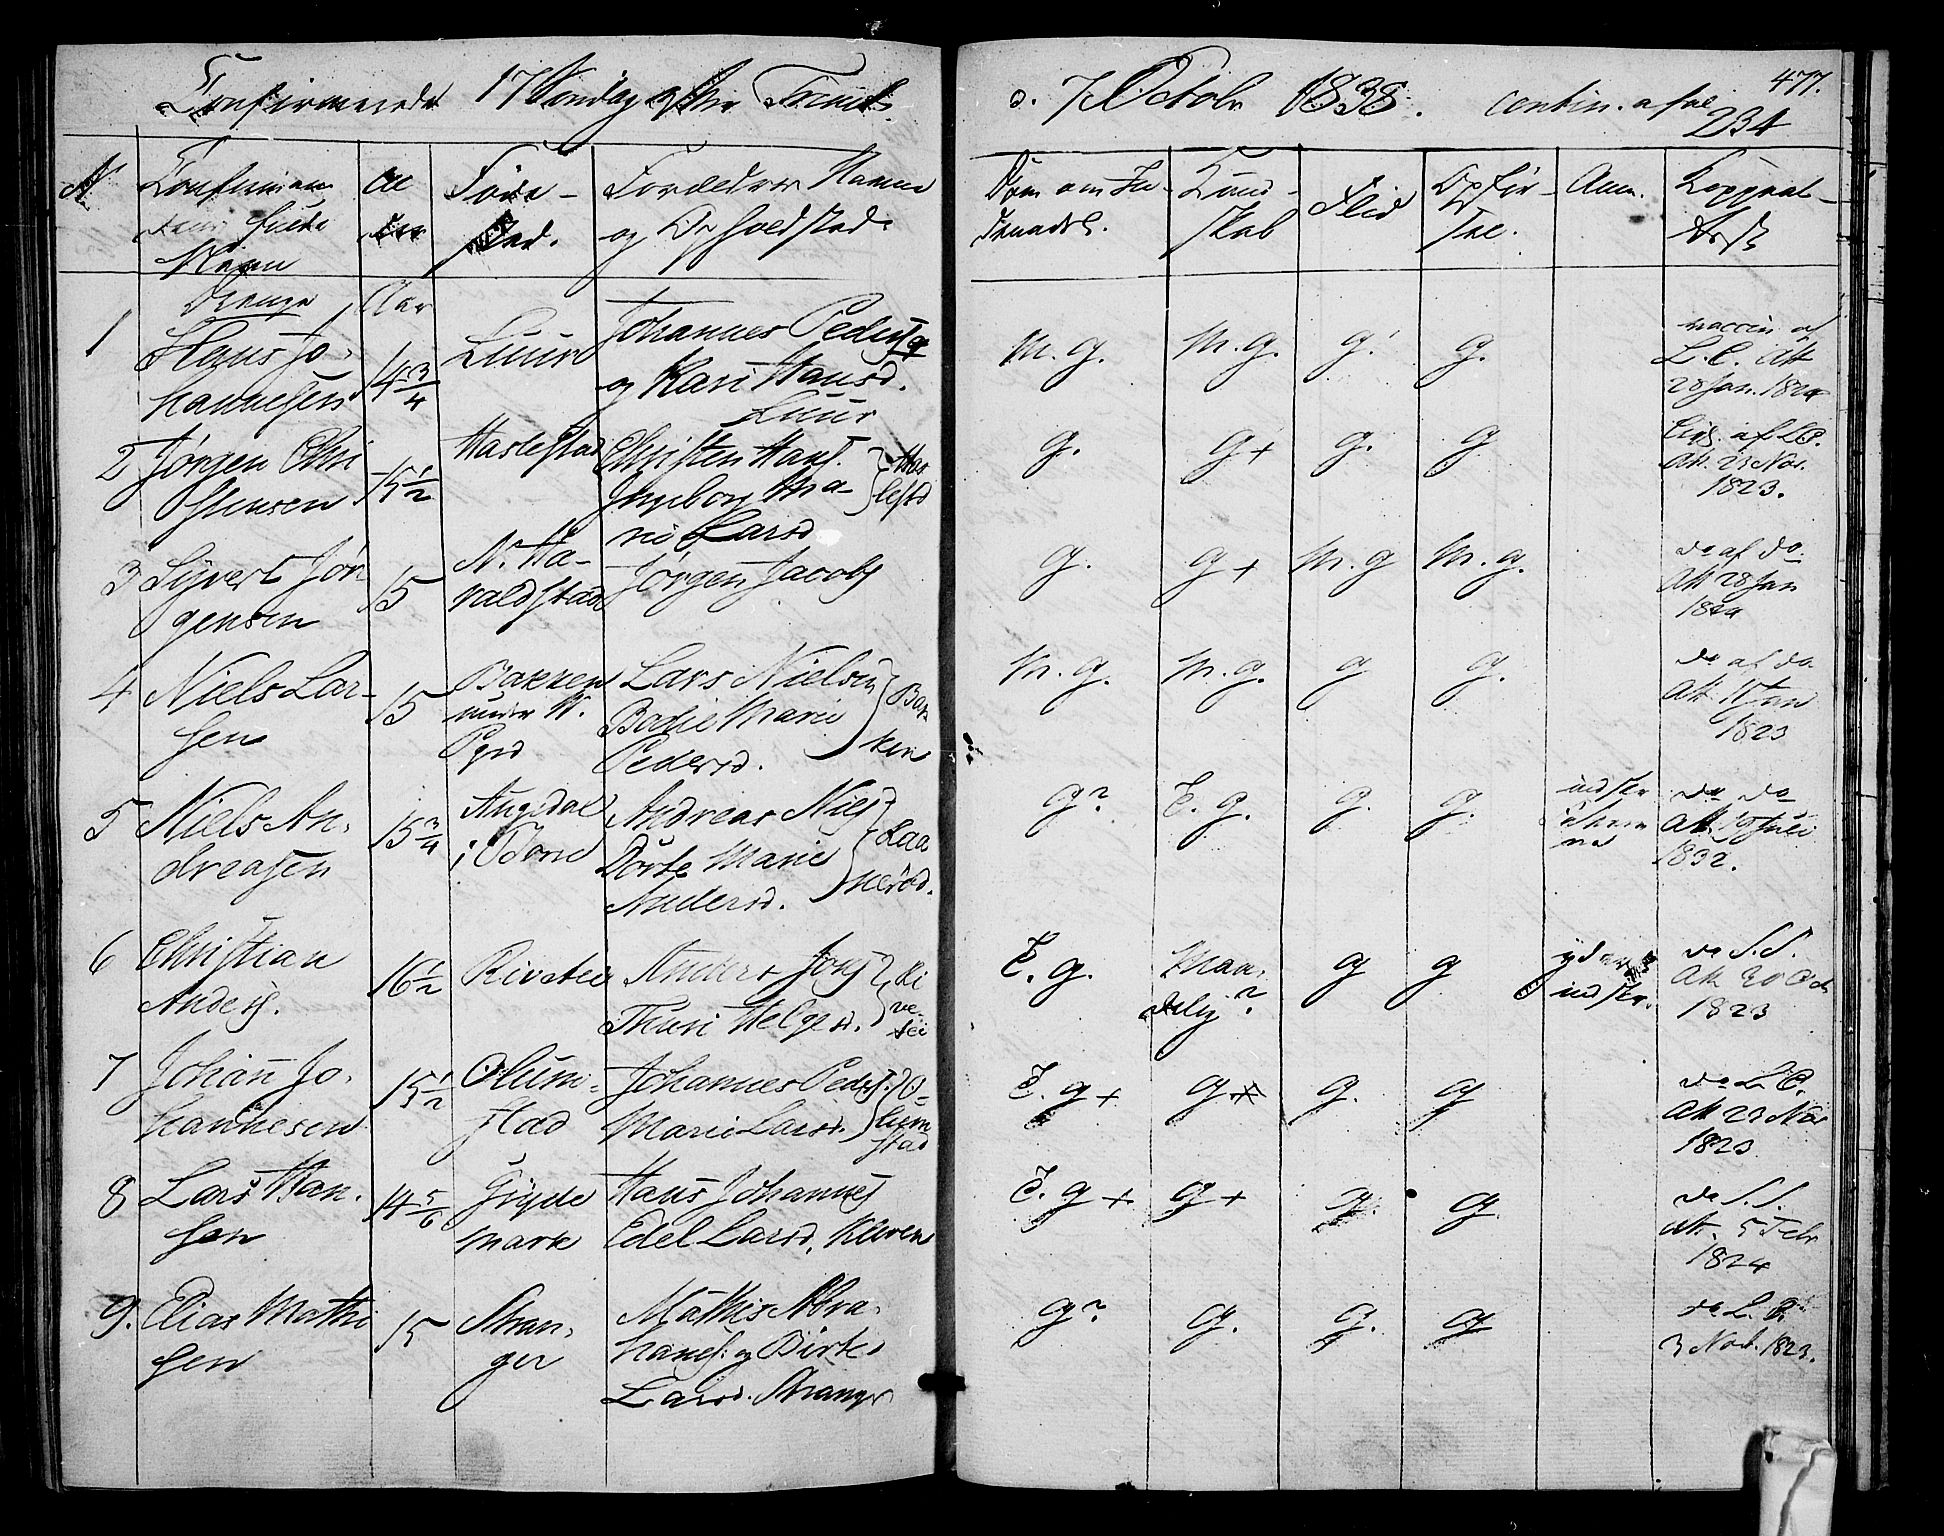 Confirmerede 17 Søndag efter Trinit.
d. 7 Octobr 1838. contin. a fol. 477.
234
N Confirman- Al Føde- Forældres Navne
dens fulde der Sted. og Opholdsted.
Navn
Dom om In- Kund- Flid Opfør- Anm. Koppeat-
skab sel.
Drenge Aar
1 Hans Jo-
hannesen 14 3/4 Luur Johannes Peders
og Kari Hansd.
Luur
M. g. M. g. g. g. vaccin. af
L. C. Att
28 Jan. 1824
2 Jørgen Chri
stensen 15 1/2 Haslestad Christen Hans.
Ingeborg Ma-
rie Larsd } Has
lestd
g. g + g. g af L.C.
Att. 23 Nov.
1823.
3 Sÿvert Jør
gensen 15 N. Ha-
valdstad Jørgen Jacobs
g. g + M. g M. g. do af do.
Att 28 Jan
1824
4 Niels Lar-
sen 15 Bakken
under
Lars Nielsen
Bodie Marie
Pedersd. } Bak
ken
M. g. M. g. g g. do af do
Att Jan
1823
5 Niels An-
dreasen 15 3/4 Angedal
i Borre Andreas Niels
Dorte Marie
Andersd. } Laa
nerød.
g? T. g. g. g. indskr
do do
Att 19 Juli
1832.
6 Christian
Anders. 16 1/2 Rivetei Anders Jons
Thuri Helgesd. } Ri
ve-
tei
T. g. Maa-
delig? g g
indskr. do S. S.
Att 30 Oct
1823
7 Johan Jo-
hannesen 15 1/2 Olum-
stad Johannes Peders.
Marie Larsd. } O-
lum
stad
T. g + g + g. g do L. C.
Att 23 Nov
1823
8 Lars Han-
sen 14 5/6 Gryde
mark Hans Johannes
Edel Larsd. Kleven
T. g + g + g. g. do S. S.
Att. 5 Febr
1824
9. Elias Mathi
sen 15 Stran-
ger Mathis Abra-
hams. og Birte
Larsd. Stranger
g? g. g. g do L. C.
3 Nov. 1823.